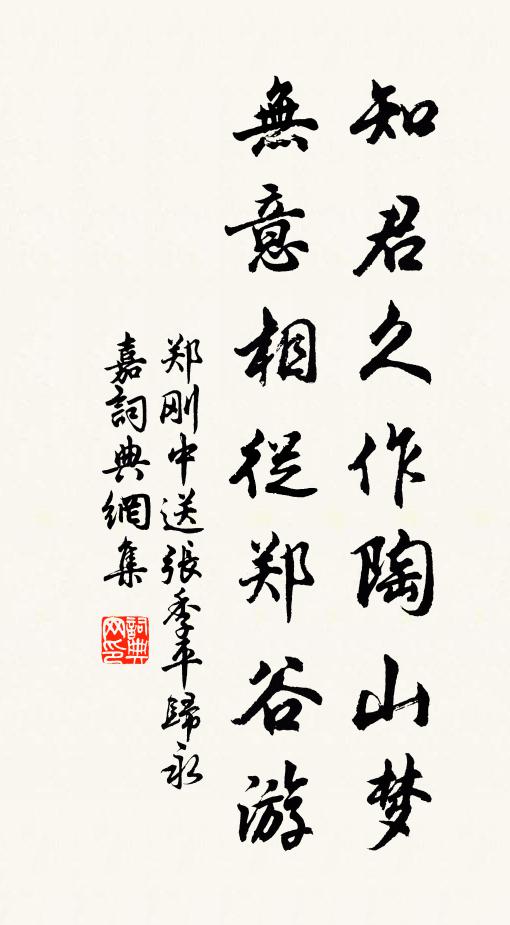 知君久作陶山梦
無意相從郑谷游
郑刚中送張季平歸永
嘉詞典網集
詞典
网印